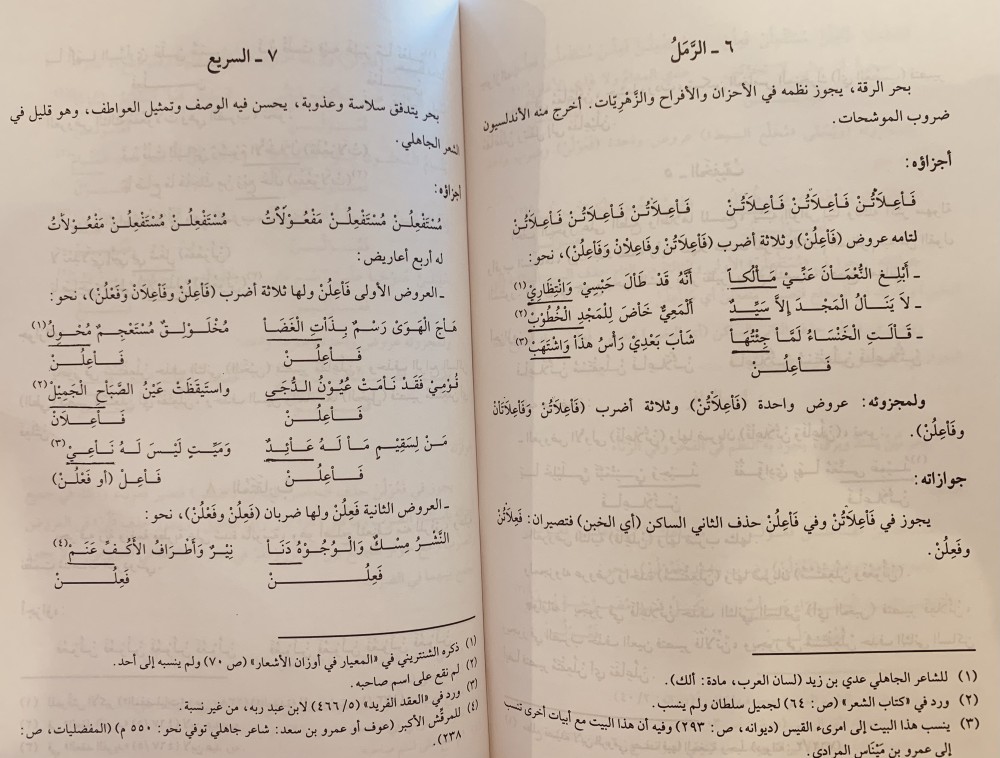 ٦ ـ الرَّمَلُ
بحر الرقة، يجوز نظمه في الأحزان والأفراح والزَّهْرِيّات. أخرج منه الأندلسيون
ضروب الموشحات.
أجزاؤه:
فَـاْعِـلَاْتُـنْ فَـاْعِـلَاْتُـنْ فَـاْعِلَاْتُنْ فَـاْعِـلَاْتُـنْ فَـاْعِـلَاْتُـنْ فَـاْعِلَاْتُنْ
لتامه عروض (فَاْعِلُنْ) وثلاثة أضرب (فَاْعِلَاْتُنْ وفَاْعِلَاْنْ وَفَاْعِلُنْ)، نحو:
ـ أَبْلِغِ النُّعْمَـانَ عَنِّـيْ مَـأْلُكـاً أَنَّهُ قَدْ طَالَ حَبْسِيْ وَانْتِظَارِيْ(١)
ـ لاَ يَنَـالُ الْمَجْـدَ إِلاَّ سَيِّـدٌ أَلْمَعِيٌّ خَاضَ لِلْمَجْدِ الْخُطُوْبْ(٢)
ـ قَـالَـتِ الْخَنْسَـاءُ لَمَّـا جِئْتُهَـا شَابَ بَعْدِيْ رَأْسُ هذَا وَاشْتَهَبْ(٣)
فَـاْعِلُـنْ
ولمجزوئه: عروض واحدة (فَاْعِلَاْتُنْ) وثلاثة أضرب (فَاْعِلَاْتُنْ وَفَاْعِلَاْتَاْنْ
وفَاْعِلُنْ).
جوازاته:
يجوز في فَاْعِلَاْتُنْ وفي فَاْعِلُنْ حذف الثاني الساكن (أي الخبن) فتصيران: فَعِلَاْتُنْ
وفَعِلُنْ.
(١) للشاعر الجاهلي عدي بن زيد (لسان العرب، مادة: ألك).
(٢) ورد في «كتاب الشعر» (ص: ٦٤) لجميل سلطان ولم ينسب.
(٣) ينسب هذا البيت إلى امرىء القيس (ديوانه، ص: ٢٩٣) وفيه أن هذا البيت مع أبيات أخرى تنسب
إلى عمرو بن مَيْنَاس المرادي.
٧ ـ السريع
بحر يتدفق سلاسة وعذوبة، يحسن فيه الوصف وتمثيل العواطف، وهو قليل في
الشعر الجاهلي.
أجزاؤه:
مُسْتَفْعِلُنْ مُسْتَفْعِلُنْ مَفْعُـوْلَاْتُ مُسْتَفْعِلُنْ مُسْتَفْعِلُنْ مَفْعُوْلَاْتُ
له أربع أعاريض:
ـ العروض الأولى فَاْعِلُنْ ولها ثلاثة أضرب (فَاْعِلُنْ وفَاْعِلَاْنْ وَفَعْلُنْ)، نحو:
هَـاجَ الْهَـوَىْ رَسْـمٌ بِـذَاتِ الْغَضَـا مُخْلَـوْلِـقٌ مُسْتَعْجِـمٌ مُحْـوِلُ(١)
فَـاْعِلُـنْ فَـاْعِلُـنْ
نُـوْمِيْ فَقَـدْ نَـامَتْ عُيُـوْنُ الـدُّجَـى واستَيقَظَتْ عَيْنُ الصَّبَاحِ الْجَمِيْلْ(٢)
فَـاْعِلُـنْ فَـاْعِـلَاْنْ
مَـنْ لِسَقِيْـمٍ مَـا لَـهُ عَـائِـدٌ وَمَيِّـتٍ لَيْـسَ لَـهُ نَـاعِـيْ(٣)
فَـاْعِلُـنْ فَـاْعِـلْ (أو فَعْلُنْ)
ـ العروض الثانية فَعِلُنْ ولها ضربان (فَعِلُنْ وفَعْلُنْ)، نحو:
النَّشْـرُ مِسْـكٌ وَالْـوُجُـوْهُ دَنَـاْ نِيْـرٌ وَأَطْـرَافُ الأَكُـفِّ عَنَـمْ(٤)
فَعِلُـنْ فَعِلُـنْ
(١) ذكره الشنتريني في «المعيار في أوزان الأشعار» (ص ٧٠) ولم ينسبه إلى أحد.
(٢) لم نقع على اسم صاحبه.
(٣) ورد في «العقد الفريد» (٥/ ٤٦٦) لابن عبد ربه، من غير نسبة.
(٤) للمرقّش الأكبر (عوف أو عمرو بن سعد: شاعر جاهلي توفي نحو: ٥٥٠ م) (المفضليات، ص:
٢٣٨).